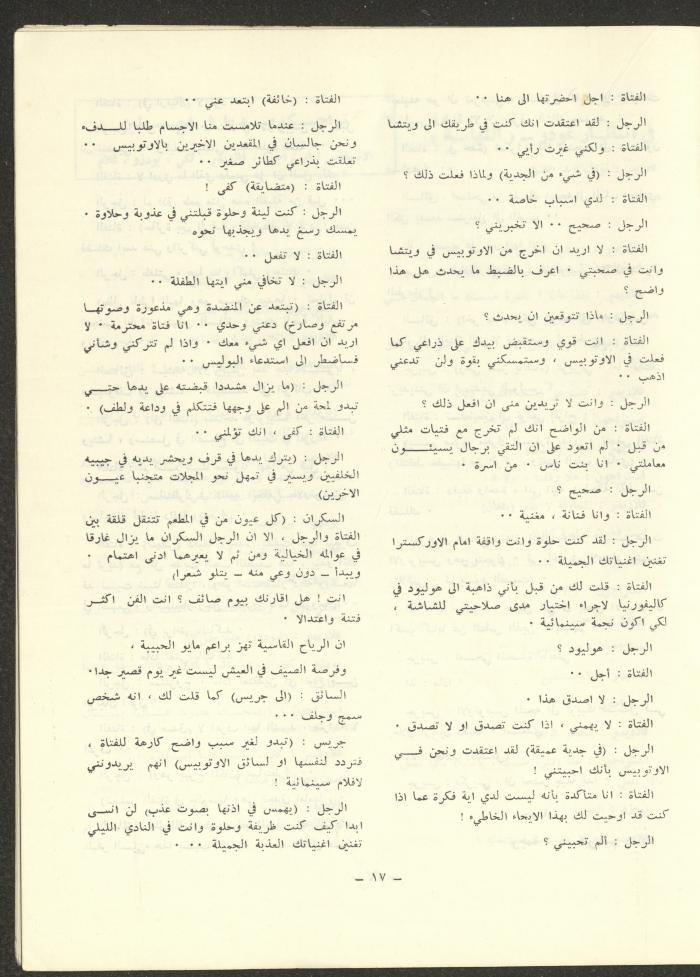 الفتاة : اجل احضرتها الى هنا ٠٠
الرجل : لقد اعتقدت انك كنت في طريقك الى ويتشا
الفتاة : ولكني غيرت رأيي ٠٠
الرجل : (في شيء من الجدية) ولماذا فعلت ذلك ؟
الفتاة : لدي اسباب خاصة ٠٠
الرجل : صحيح ٠٠ الا تخبريني ؟
الفتاة : لا اريد ان اخرج من الاوتوبيس في ويتشا
وانت في صحبتي ٠ اعرف بالضبط ما يحدث هل هذا
واضح ؟
الرجل : ماذا تتوقعين ان يحدث ؟
الفتاة : انت قوي وستقبض بيدك على ذراعي كما
فعلت في الاوتوبيس ، وستمسكني بقوة ولن تدعني
اذهب ٠٠
الرجل : وانت لا تريدين منى ان افعل ذلك ؟
الفتاة : من الواضح انك لم تخرج مع فتيات مثلي
من قبل ٠ لم اتعود على ان التقي برجال يسيئــــون
معاملتي ٠ انا بنت ناس ٠ من اسرة ٠
الرجل : صحيح ؟
الفتاة : وانا فنانة ، مغنية ٠٠
الرجل : لقد كنت حلوة وانت واقفة امام الاوركسترا
تغنين اغنياتك الجميلة ٠٠
الفتاة : قلت لك من قبل بأني ذاهبة الى هوليود في
كاليفورنيا لاجراء اختبار مدى صلاحيتي للشاشة ،
لكي اكون نجمة سينمائية ٠
الرجل : هوليود ؟
الفتاة : أجل ٠٠
الرجل : لا اصدق هذا ٠
الفتاة : لا يهمني ، اذا كنت تصدق او لا تصدق ٠
الرجل : (في جدية عميقة) لقد اعتقدت ونحن فـــي
الاوتوبيس بأنك احببتني !
الفتاة : انا متأكدة بأنه ليست لدي اية فكرة عما اذا
كنت قد اوحيت لك بهذا الايحاء الخاطيء !
الرجل : ألم تحبيني ؟
الفتاة : (خائفة) ابتعد عني ٠٠
الرجل : عندما تلامست منا الاجسام طلبا للـــدفء
ونحن جالسان في المقعدين الاخيرين بالاوتوبيس ٠٠
تعلقت بذراعي كطائر صغير ٠٠
الفتاة : (متضايقة) كفى !
الرجل : كنت لينة وحلوة قبلتني في عذوبة وحلاوة ٠
يمسك رسغ يدها ويجذبها نحوه
الفتاة : لا تفعل ٠٠
الرجل : لا تخافي مني ايتها الطفلة ٠٠
الفتاة : (تبتعد عن المنضدة وهي مذعورة وصوتهــا
مرتفع وصارخ) دعني وحدي ٠٠ انا فتاة محترمة ٠ لا
اريد ان افعل اي شيء معك ٠ واذا لم تتركني وشأني
فسأضطر الى استدعاء البوليس ٠٠
الرجل : (ما يزال مشددا قبضته على يدها حتـــي
تبدو لمحة من الم على وجهها فتتكلم في وداعة ولطف) ٠
الفتاة : كفى ، انك تؤلمني ٠٠
الرجل : (يترك يدها في قرف ويحشر يديه في جيبيه
الخلفيين ويسير في تمهل نحو المجلات متجنبا عيـــون
الاخرين)
السكران : (كل عيون من في المطعم تتنقل قلقة بين
الفتاة والرجل ، الا ان الرجل السكران ما يزال غارقا
في عوالمه الخيالية ومن ثم لا يعيرهما ادنى اهتمام ٠
ويبدأ ــ دون وعي منه ــ يتلو شعرا)
انت ! هل اقارنك بيوم صائف ؟ انت الفن اكثــر
فتنة واعتدالا ٠
ان الرياح القاسية تهز براعم مايو الحبيبة ،
وفرصة الصيف في العيش ليست غير يوم قصير جدا٠
السائق : (الى جريس) كما قلت لك ، انه شخص
سمج وجلف ٠٠٠
جريس : (تبدو لغير سبب واضح كارهة للفتاة ،
فتردد لنفسها او لسائق الاوتوبيس) انهم يريدونني
لافلام سينمائية !
الرجل : (يهمس في اذنها بصوت عذب) لن انســى
ابدا كيف كنت ظريفة وحلوة وانت في النادي الليلي
تغنين اغنياتك العذبة الجميلة ٠٠ ٠
ــ ١٧ ــ